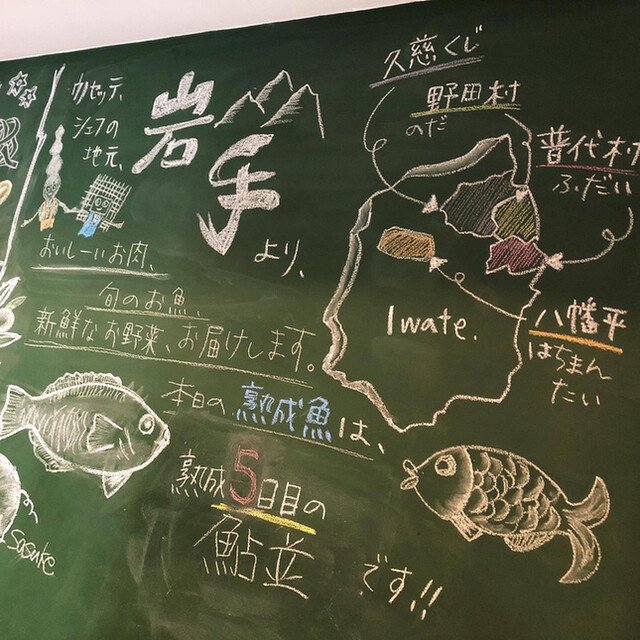 カセッテ、
シェフの
地元、
岩手
より、
おいしーいお肉、
旬のお魚、
新鮮なお野菜、お届けします。
本日の熟成魚は、
熟成5日目の
鮎並
です!!
久慈くじ
野田村
のだ
普代村
ふだい
八幡平
はちまん
たい
Iwate.
Sasuke